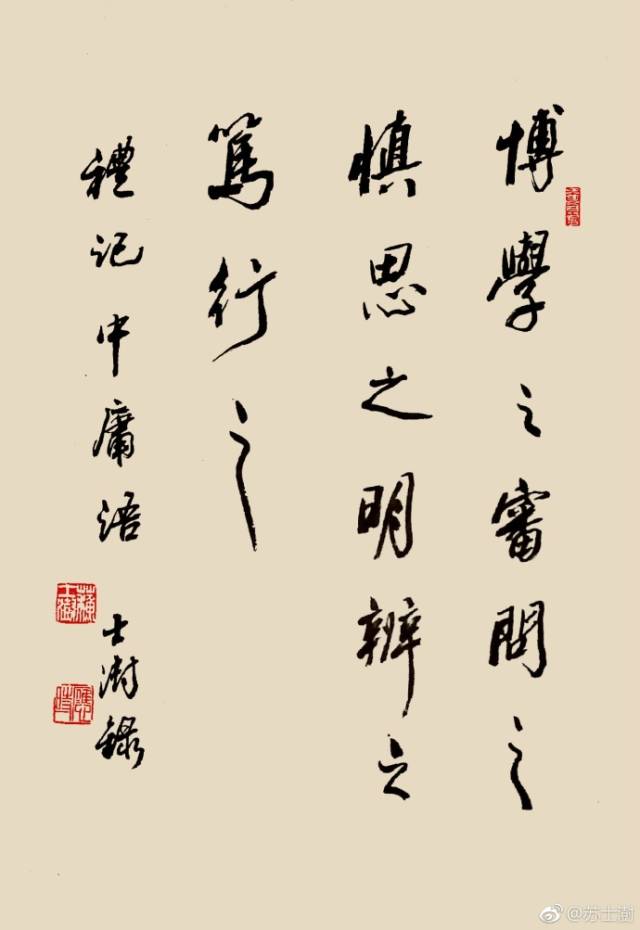 博學之審問之
慎思之明辨之
篤行之
禮記中庸語
士澍錄
@苏士澍